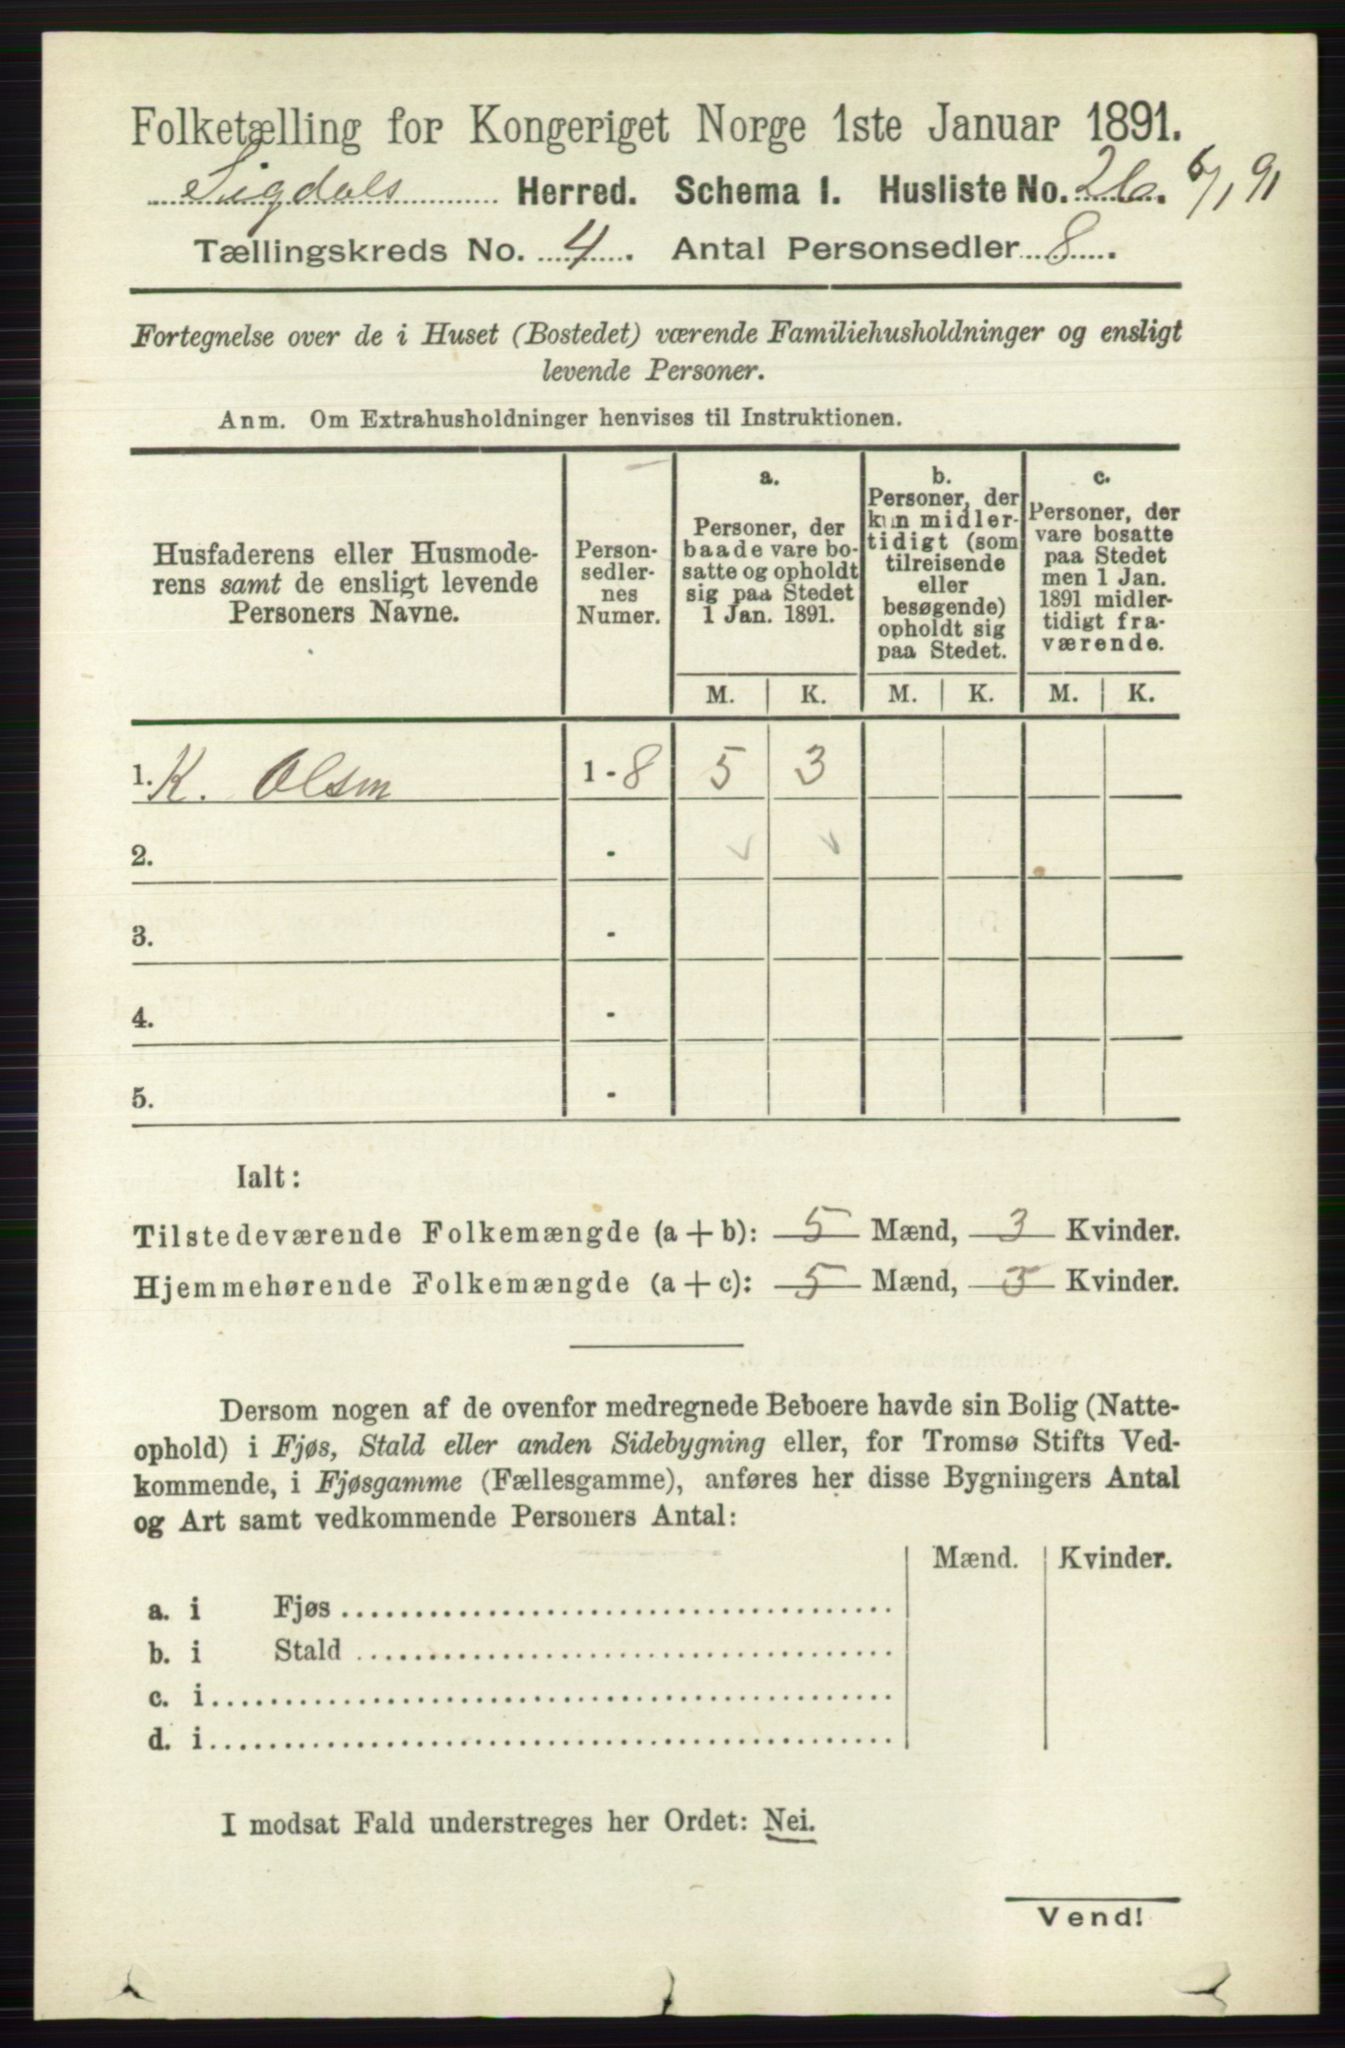 Folketælling for Kongeriget Norge 1ste Januar 1891.
Sigdals Herred. Schema 1. Husliste No. 26. 6/1 91
Tællingskreds No. 4. Antal Personsedler 8.
Fortegnelse over de i Huset (Bostedet) værende Familiehusholdninger og ensligt
levende Personer.
Anm. Om Extrahusholdninger henvises til Instruktionen.
Husfaderens eller Husmode-
rens samt de ensligt levende
Personers Navne.
Person-
sedler-
nes
Numer.
a.
Personer, der
baade vare bo-
satte og opholdt
sig paa Stedet
1 Jan. 1891.
b.
Personer, der
kun midler-
tidigt (som
tilreisende
eller
besøgende)
opholdt sig
paa Stedet.
c.
Personer, der
vare bosatte
paa Stedet
men 1 Jan.
1891 midler-
tidigt fra-
værende.
M. K. M. K. M. K.
1. K. Olsen 1 - 8 5 3
2. -
3. -
4. -
5. -
Ialt:
Tilstedeværende Folkemængde (a + b): 5 Mænd, 3 Kvinder.
Hjemmehørende Folkemængde (a + c): 5 Mænd, 3 Kvinder.
Dersom nogen af de ovenfor medregnede Beboere havde sin Bolig (Natte-
ophold) i Fjøs, Stald eller anden Sidebygning eller, for Tromsø Stifts Ved-
kommende, i Fjøsgamme (Fællesgamme), anføres her disse Bygningers Antal
og Art samt vedkommende Personers Antal:
Mænd. Kvinder.
a. i Fjøs
b. i Stald
c. i
d. i
I modsat Fald understreges her Ordet: Nei.
Vend!